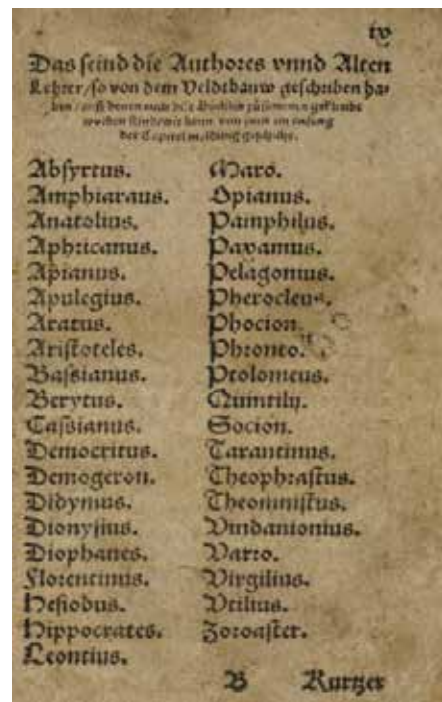 iv
Das seind die Authores vnnd Alten
Lehrer/so von dem Veldtbauw geschriben ha-
ben/auß denen
der Capitel meldung geschicht.
Absyrtus.
Amphiaraus.
Anatolius.
Aphricanus.
Apianus.
Apulegius.
Aratus.
Aristoteles.
Bassianus.
Berytus.
Cassianus.
Democritus.
Demogeron.
Didymus.
Dionysius.
Diophanes.
Florentinus.
Hesiodus.
Hippocrates.
Leontius.
Maro.
Opianus.
Pamphilus.
Paxamus.
Pelagonius.
Pherocleus.
Phocion.
Phronto.
Ptolomeus.
Quintilij.
Socion.
Tarantinus.
Theophrastus.
Theomnistus.
Vindanionius.
Varro.
Virgilius.
Vtilius.
Zoroaster.
B Kurtzer